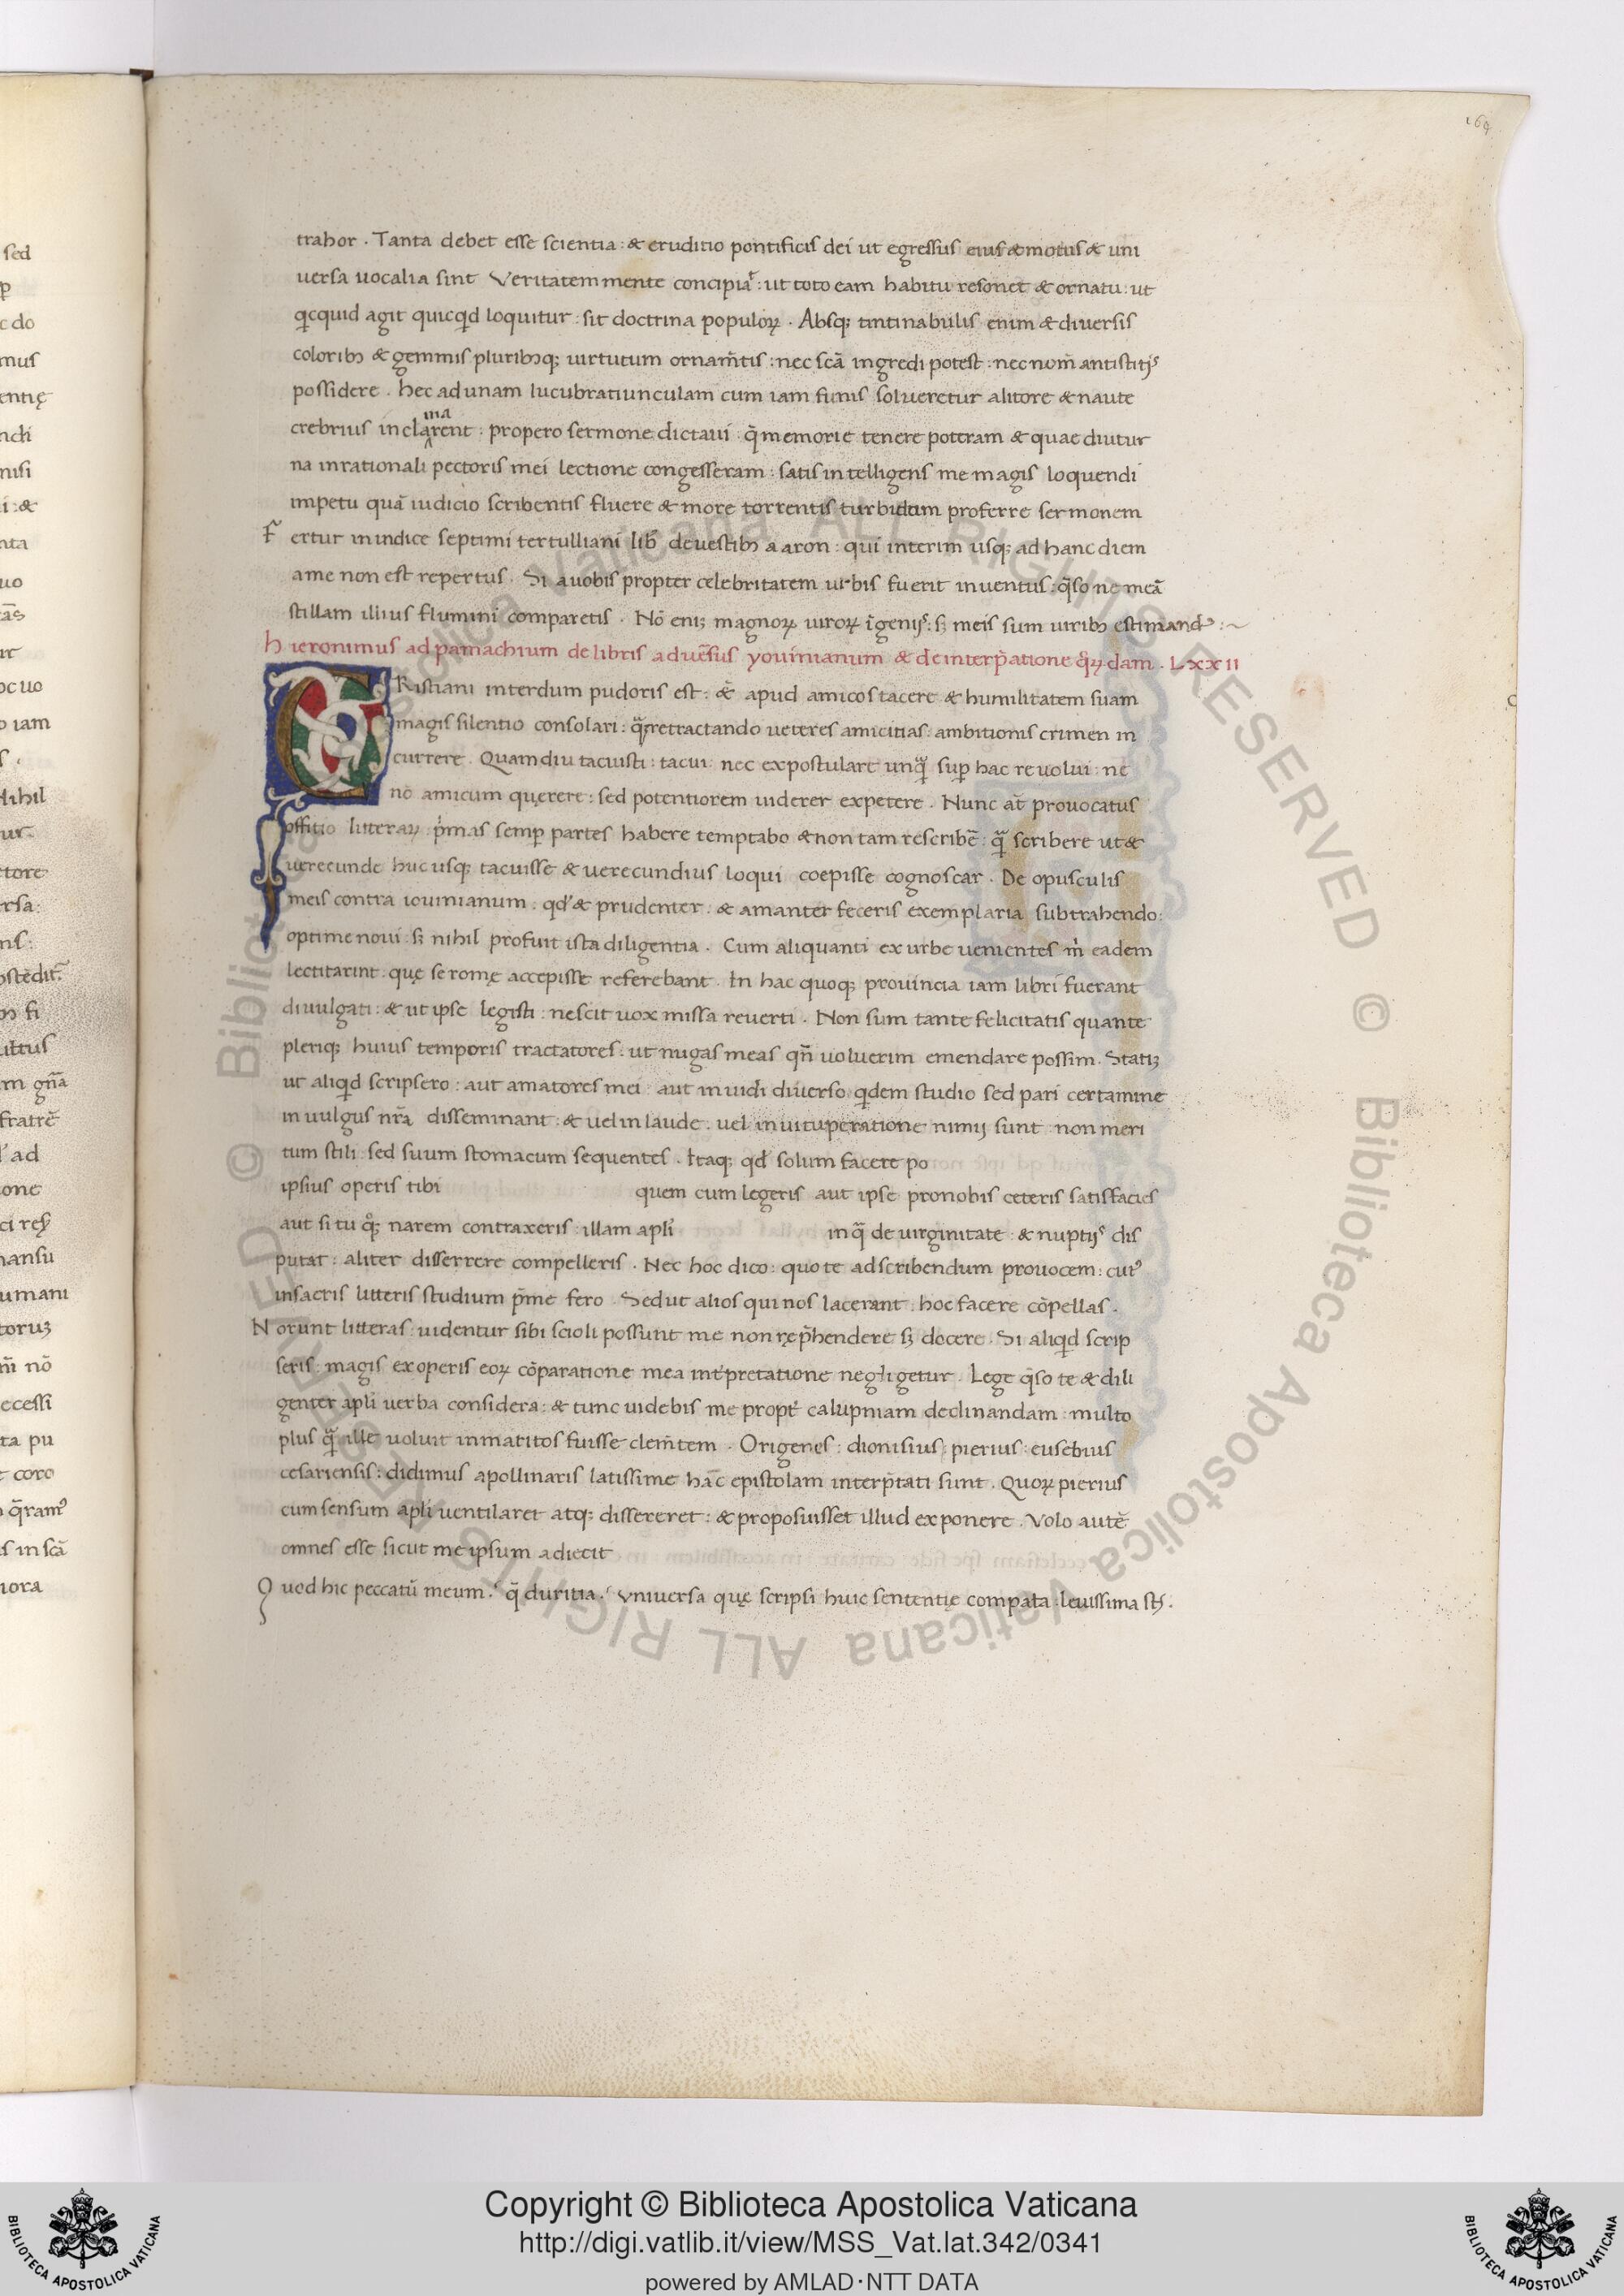 169
trahor . Tanta debet esse scientia : & eruditio pontificis dei ut egressus eius & motus & uni
uersa uocalia sint Veritatem mente concipiat᷒ : ut toto eam habitu resonet & ornatu : ut
qicquid agit quicqd loquitur : sit doctrina populoꝝ . Absqꝫ tintinabulis enim & diuersis
coloribꝰ & gemmis pluribꝰqꝫ uirtutum ornam̄tis : nec scā ingredi potest : nec nom̄ antistitis
possidere . hec ad unam lucubratiunculam cum iam funis solueretur a litore & naute
crebrius incla\ma/rent : propero sermone dictaui : q̄ memorie tenere poteram & quae diutur
na in rationali pectoris mei lectione congesseram : satis intelligens me magis loquendi
impetu quā iudicio scribentis fluere & more torrentis turbidum proferre sermonem
Fertur in indice septimi tertulliani lib̄ de uestibꝰ aaron : qui interim usqꝫ ad hanc diem
a me non est repertus . Si a uobis propter celebritatem urbis fuerit inuentus : q̄so ne meā
stillam illius flumini comparetis . Nō eniꝫ magnoꝝ uiroꝝ īgenijs : sꝫ meis sum uiribꝰ estimandꝰ : ~
hieronimus ad pamachium de libris aduēsus youinianum & de interp̄atione qꝝdam . LXXII
CRistiani interdum pudoris est : & apud amicos tacere & humilitatem suam
magis silentio consolari : q̄ retractando ueteres amicitias : ambitionis crimen in
currere . Quamdiu tacuisti : tacui : nec expostulare unq̄ suꝑ hac re uolui : ne
nō amicum querere : sed potentiorem uiderer expetere . Nunc at̄ prouocatus
offitio litteraꝝ : pimas semꝑ partes habere temptabo & non tam rescribē : q̄ scribere ut &
uerecunde huc usqꝫ tacuisse & uerecundius loqui coepisse cognoscar . De opusculis
meis contra iouinianum : qd & prudenter : & amanter feceris exemplaria subtrahendo :
optime noui : sꝫ nihil profuit ista diligentia . Cum aliquanti ex urbe uenientes m̄ eadem
lectitarint : quę se romę accepisse referebant . In hac quoqꝫ prouincia iam libri fuerant
diuulgati : & ut ipse legisti : nescit uox missa reuerti . Non sum tante felicitatis quante
pleriqꝫ huius temporis tractatores : ut nugas meas qn̄ uoluerim emendare possim . Statiꝫ
ut aliqd scripsero : aut amatores mei : aut inuidi diuerso qdem studio sed pari certamine
in uulgus nr̄a disseminant : & uel in laude . uel in uituperatione nimij sunt : non meri
tum stili : sed suum stomacum sequentes . Itaqꝫ qd solum facere po
ipsius operis tibi quem cum legeris aut ipse pro nobis ceteris satisfacies
aut si tu qꝫ narem contraxeris : illam apli in q̄ de uirginitate : & nuptijs dis
putat : aliter disserrere compelleris . Nec hoc dico : quo te ad scribendum prouocem : cuiꝰ
in sacris litteris studium p̄ me fero . Sed ut alios qui nos lacerant : hoc facere cōpellas .
Norunt litteras : uidentur sibi scioli possunt me non rep̄hendere sꝫ docere . Si aliqd scrip
seris : magis ex operis eoꝝ cōparatione mea int̄pretatione negligetur . Lege q̄so te & dili
genter apli uerba considera : & tunc uidebis me propt̄ calupniam declinandam : multo
plus q̄ ille uoluit in matitos fuisse clem̄tem . Origenes : dionisius : pierius : eusebius
cesariensis : didimus apollinaris latissime hāc epistolam interp̄tati sunt . Quoꝝ pierius
cum sensum apli uentilaret atqꝫ dissereret : & proposuisset illud exponere . Volo autē
omnes esse sicut me ipsum adiecit
Quod hic peccatū meum . q̄ duritia . Vniuersa quę scripsi huic sententię compata : leuissima st .
Copyright © Biblioteca Apostolica Vaticana
http://digi.vatlib.it/view/MSS_Vat.lat.342/0341
powered by AMLAD·NTT DATA
BIBLIOTECA APOSTOLICA VATICANA
BIBLIOTECA APOSTOLICA VATICANA